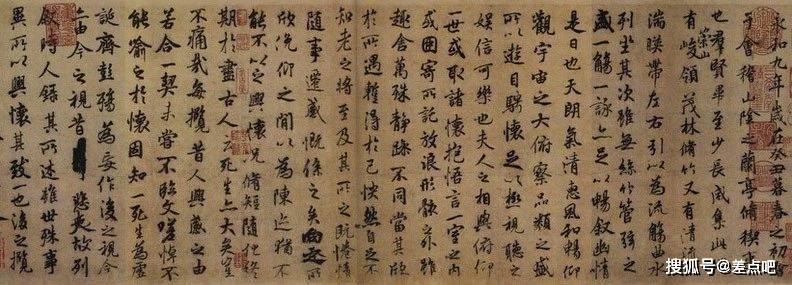 永和九年歲在癸丑暮春之初會
于會稽山陰之蘭亭脩禊
也群賢畢至少長咸集此
有崇山峻領茂林脩竹又有清流
湍暎帶左右引以為流觴曲水
列坐其次雖無絲竹管弦之
盛一觴一詠亦足以暢敘幽情
是日也天朗氣清惠風和暢仰
觀宇宙之大俯察品類之盛
所以遊目騁懷足以極視聽之
娛信可樂也夫人之相與俯仰
一世或取諸懷抱悟言一室之內
或因寄所託放浪形骸之外雖
趣舍萬殊靜躁不同當其欣
於所遇蹔得於己怏然自足不
知老之將至及其所之既惓情
隨事遷感慨係之矣向之所
欣俛仰之間以為陳迹猶不
能不以之興懷況脩短隨化終
期於盡古人云死生亦大矣豈
不痛哉每攬昔人興感之由
若合一契未嘗不臨文嗟悼不
能喻之於懷固知一死生為虛
誕齊彭殤為妄作後之視今
亦由今之視昔悲夫故列
敘時人錄其所述雖世殊事
異所以興懷其致一也後之攬
搜狐号@差点吧